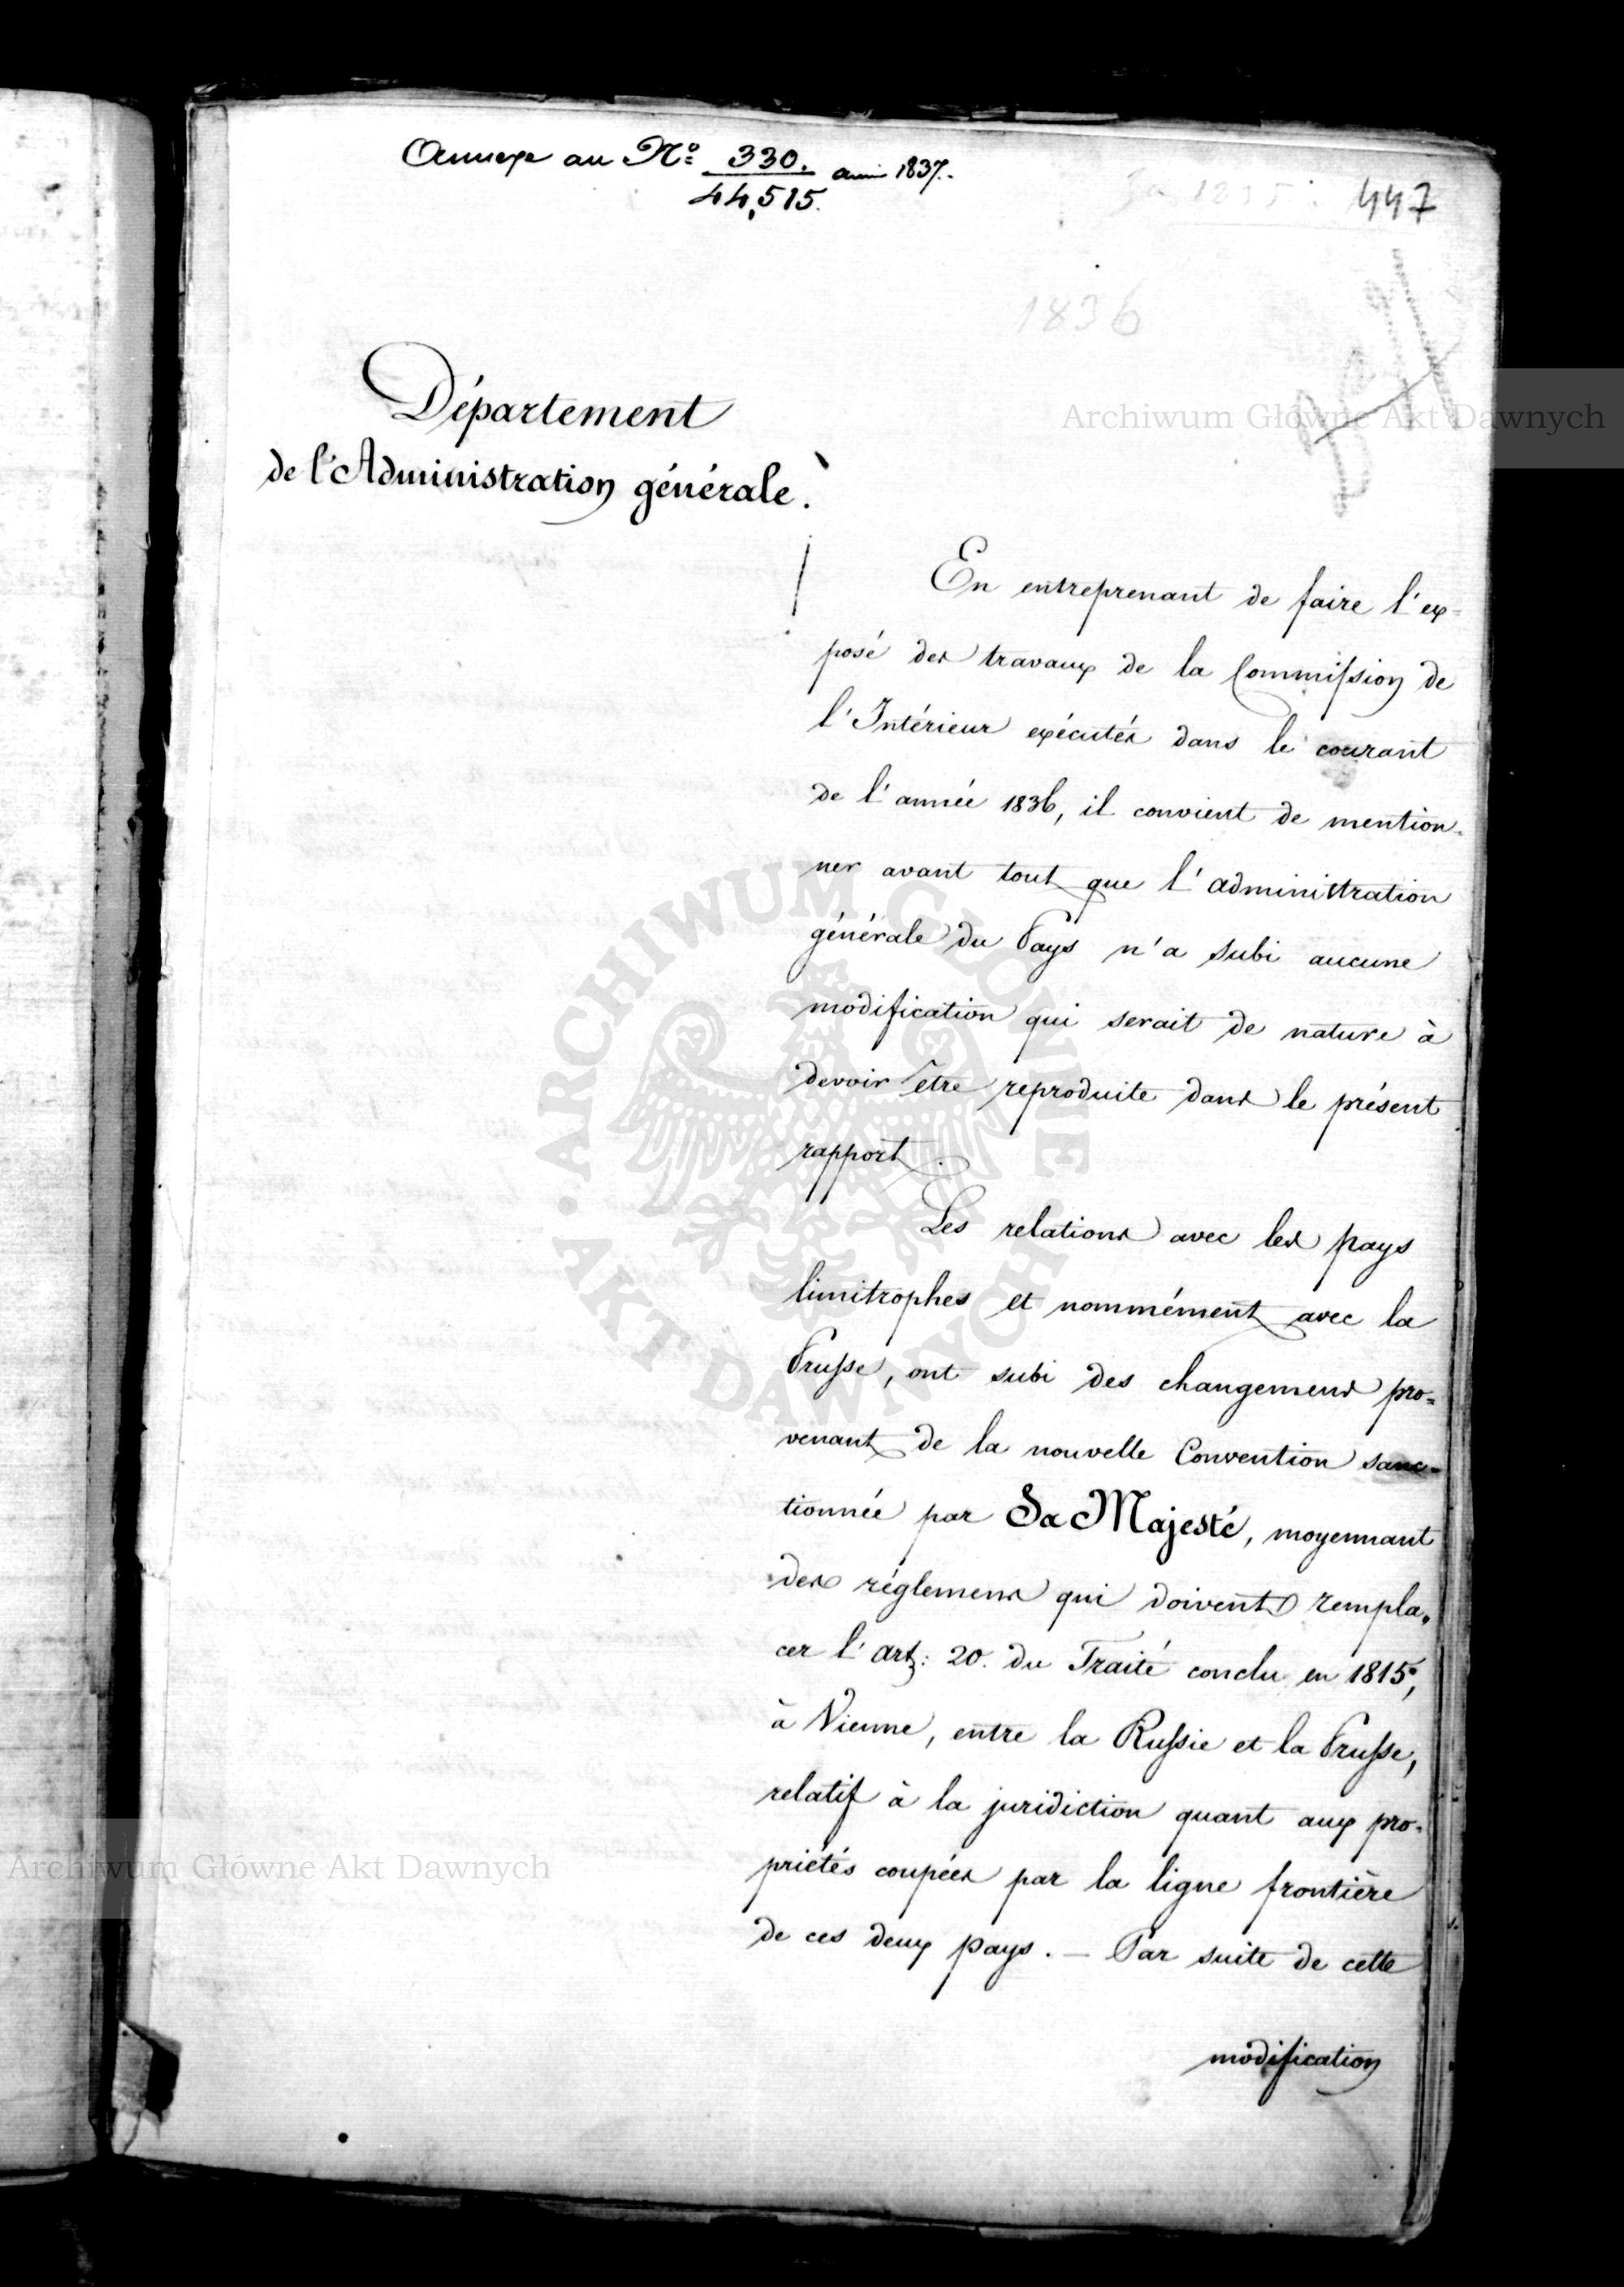 Annexe au Nº 330. anni 1837.
44,515.
1835
447
1836
Archiwum Główne Akt Dawnych
Département
de l'Administration générale.
En entreprenant de faire l'ex=
posé des travaux de la Commission de
l'Intérieur exécutés dans le courant
de l'année 1836, il convient de mention=
ner avant tout que l'administration
générale du Pays n'a subi aucune
modification qui serait de nature à
devoir être reproduite dans le présent
rapport.
Les relations avec les pays
limitrophes et nommément avec la
Prusse, ont subi des changemens pro=
venant de la nouvelle Convention sanc=
tionnée par Sa Majesté, moyennant
des réglemens qui doivent rempla=
cer l'art: 20. du Traité conclu en 1815,
à Vienne, entre la Russie et la Prusse,
relatif à la juridiction quant aux pro=
priétés coupées par la ligne frontière
de ces deux pays. — Par suite de cette
modification
ARCHIWUM GŁÓWNE AKT DAWNYCH
Archiwum Główne Akt Dawnych